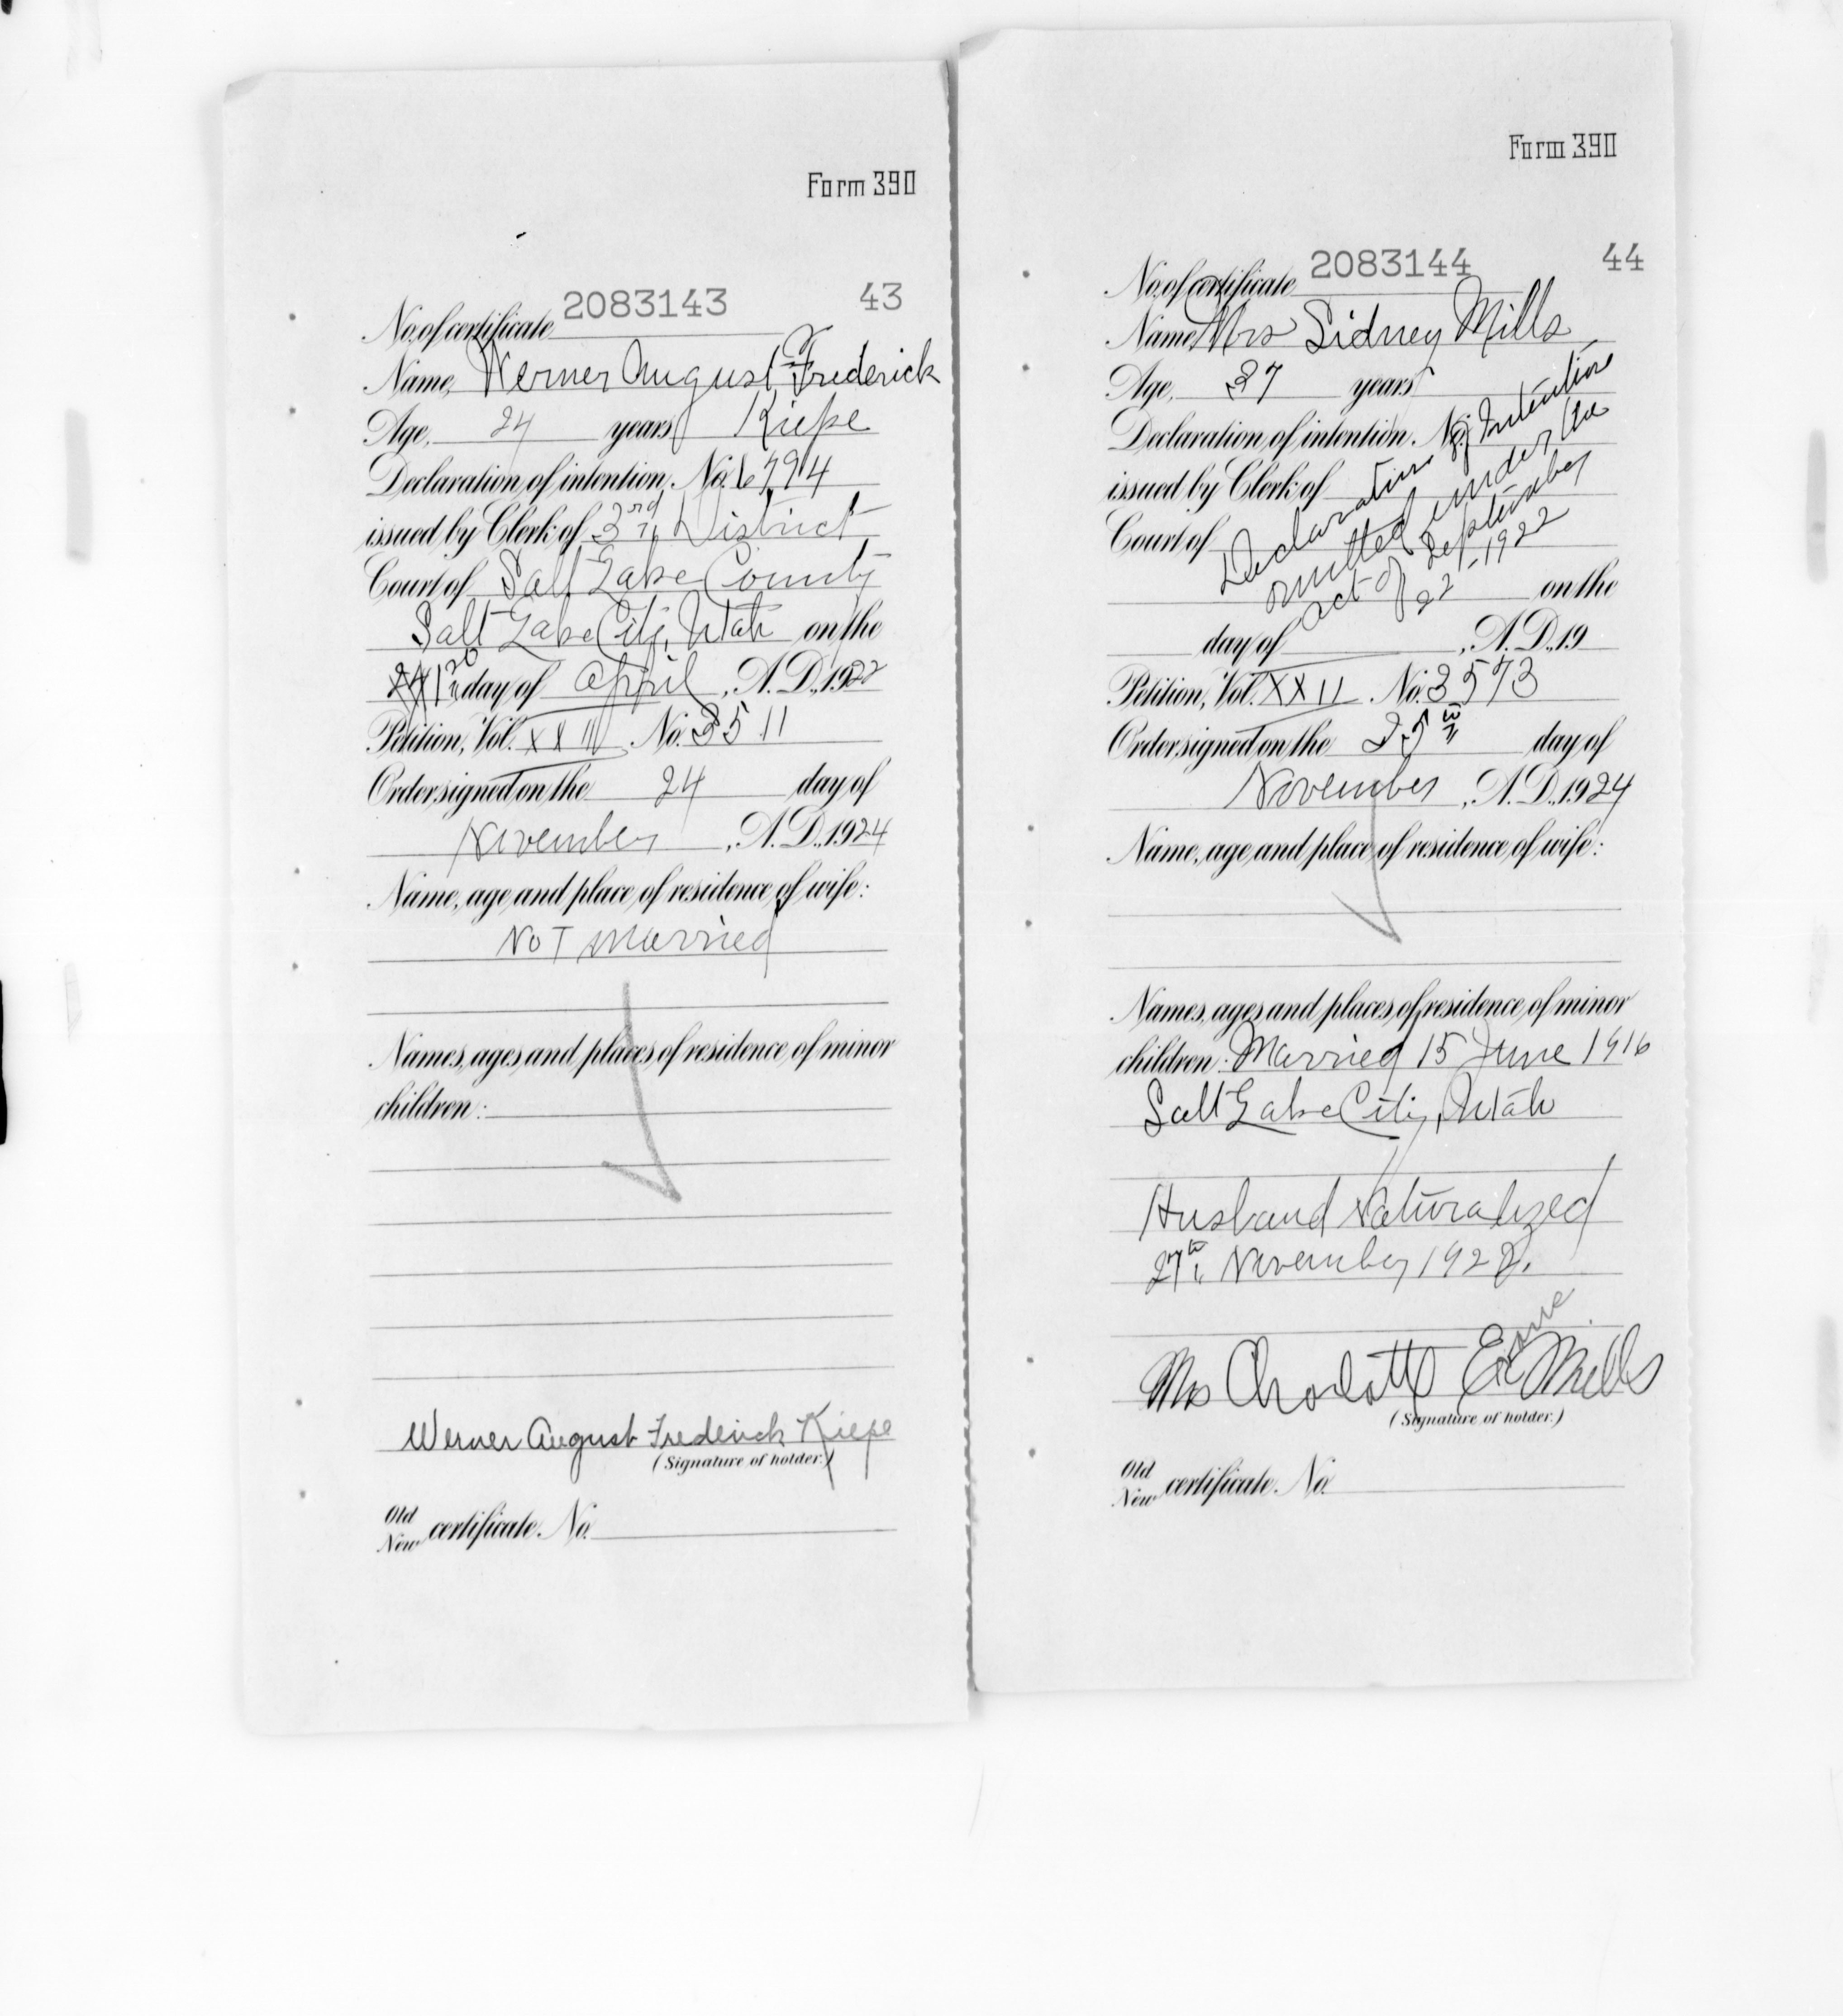 Form 390
No. of certificate 2083143 43
Name, Werner August Frederick
Age, 24 years Kiepe
Declaration of intention, No. 6794
issued by Clerk of 3rd District
Court of Salt Lake County
Salt Lake City, Utah on the
20 day of April, A.D., 1922
Petition, Vol. XXII No. 3511
Order signed on the 24 day of
November, A.D., 1924
Name, age and place of residence of wife:
Not Married
Names, ages and places of residence of minor
children:
Werner August Frederick Kiepe
(Signature of holder.)
Old
New certificate No.
Form 390
No. of certificate 2083144 44
Name Mrs Sidney Mills
Age, 37 years
Declaration of intention, No.
issued by Clerk of
Court of
on the
day of , A.D., 19
Declaration of Intention
omitted under the
act of September
22 - 1922
Petition, Vol. XXII No. 3573
Order signed on the 25th day of
November, A.D., 1924
Name, age and place of residence of wife:
Names, ages and places of residence of minor
children: Married 15 June 1916
Salt Lake City, Utah
Husband Naturalized
27th November 1922.
Mrs Charlotte Mills
(Signature of holder.)
Old
New certificate No.